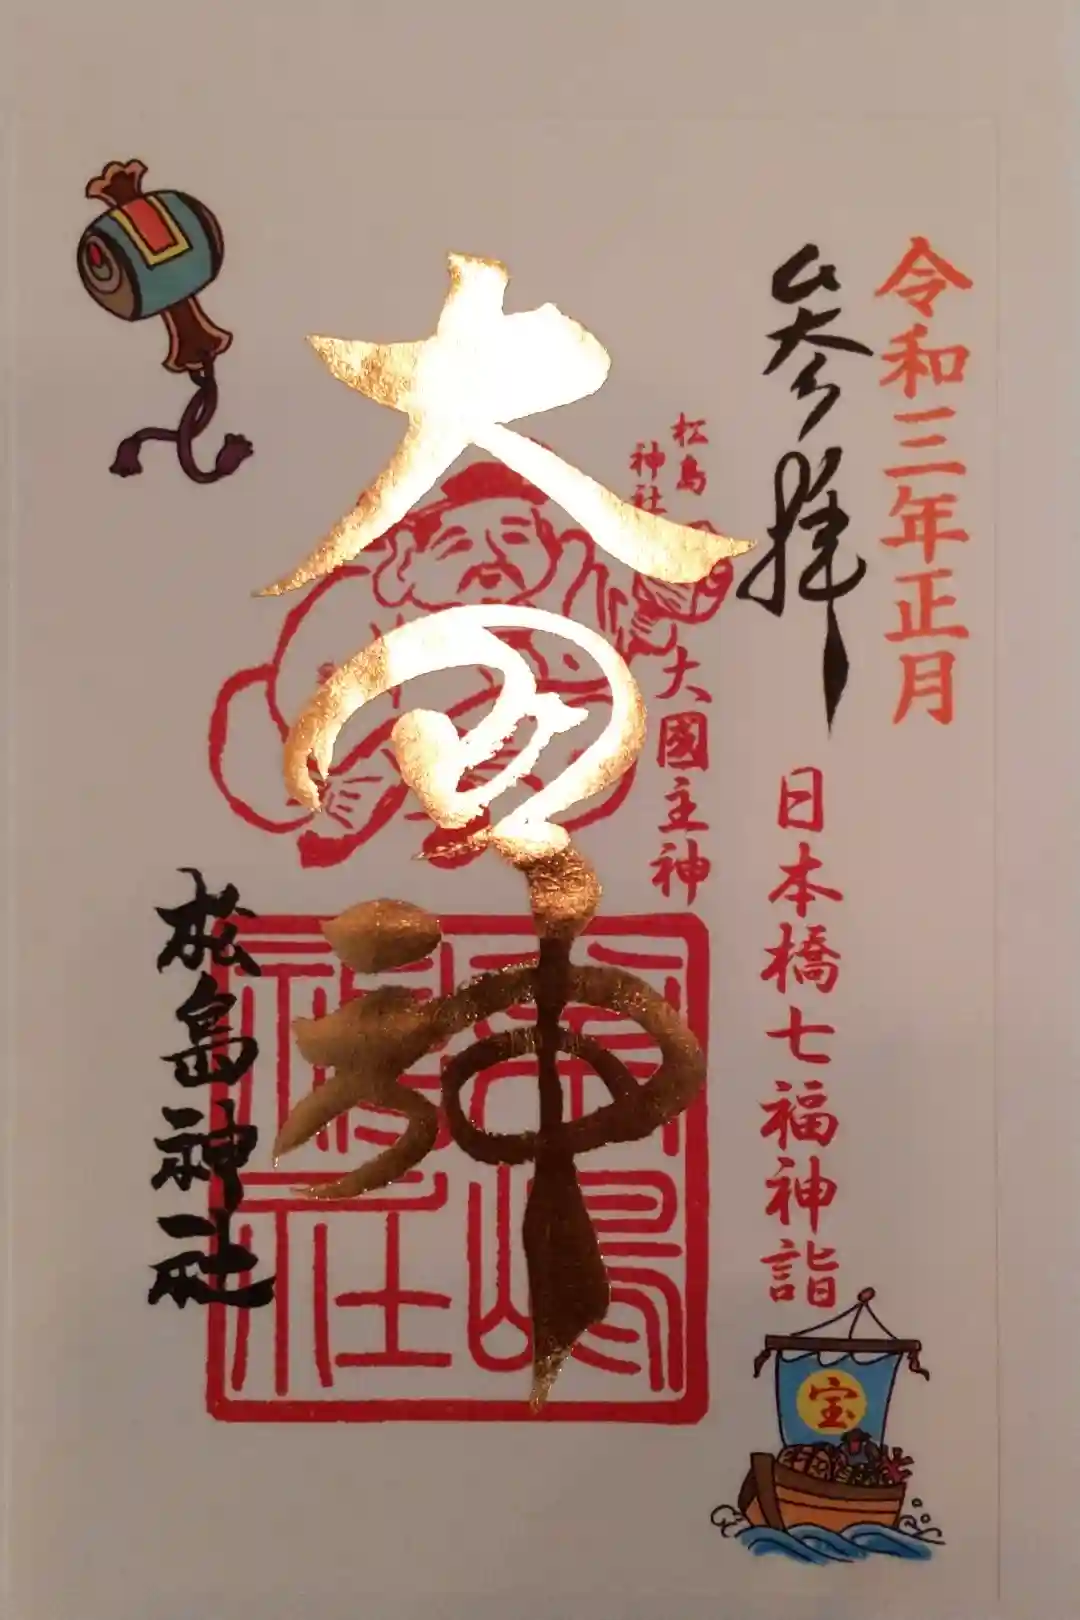 令和三年正月
参拝
日本橋七福神詣
松島
神社
大國主神
大国神
松島神社
松嶋神社
宝